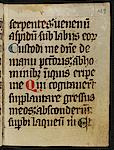 serpentes: uenenū
aspidū sub labiis eoꝝ
Custodi me dn̄e de
manu pctōris: ab ho
minibz iniquis eripe
me Qui cogitauerūt
supplantare gressus
meos: absconderūt
supbi laqueū m